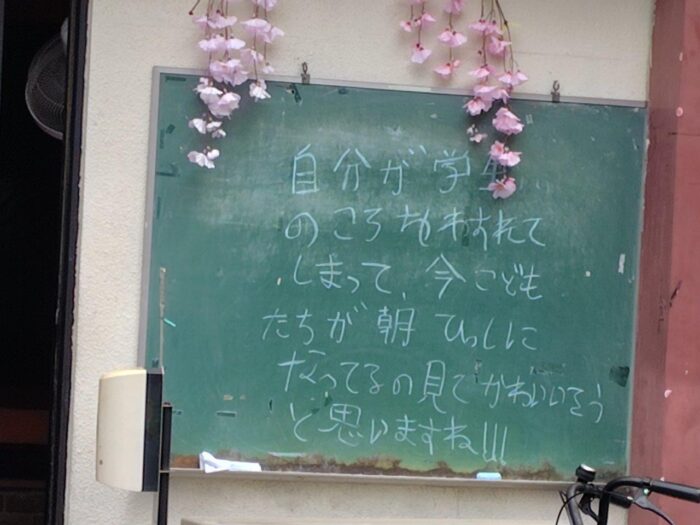 自分が学生
のころもわすれて
しまって、今こども
たちが朝ひっしに
なってるの見てかわいいそう
と思いますね!!!